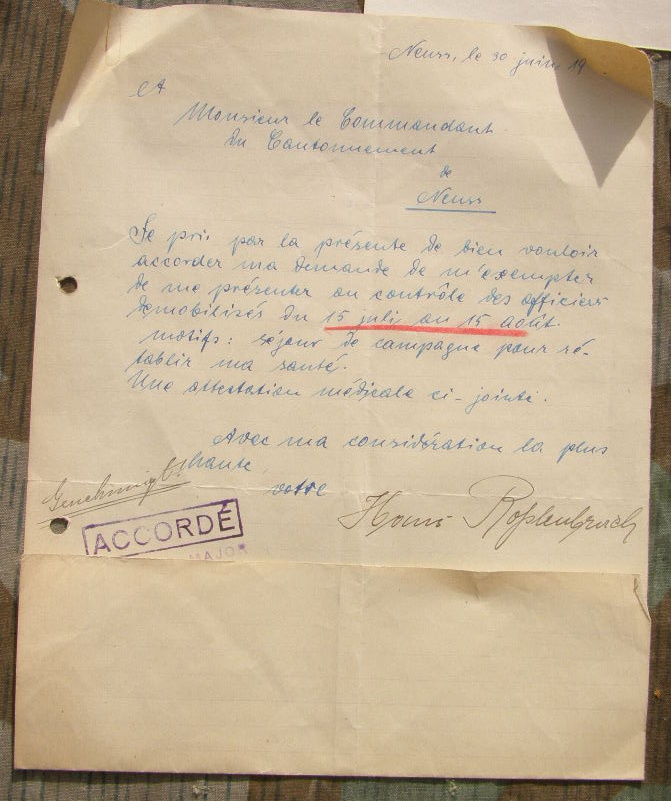 Neuss, le 30 juin 19
A
Monsieur le Commandant
du Cantonnement
de
Neuss
Je pris par la présente de bien vouloir
accorder ma demande de m'exempter
de me présenter au contrôle des officiers
demobilisés du 15 juli au 15 août.
motifs: séjour de campagne pour ré-
tablir ma santé.
Une attestation médicale ci-jointe.
Avec ma considération la plus
haute
votre
Genehmigt!
Hans
ACCORDÉ
MAJOR